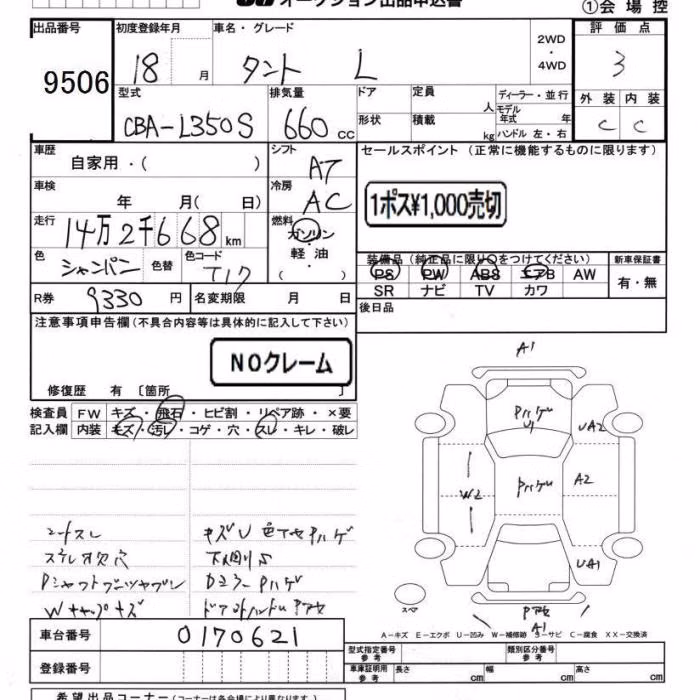 オークション出品申込書
①会場控
出品番号 初度登録年月 車名・グレード 評価点
9506 18 月 タント L 2WD・4WD 3
型式 排気量 ドア 定員 人 ディーラー・並行 外装 内装
CBA-L350S 660 cc 形状 積載 kg モデル年式 年 C C
ハンドル 左・右
車歴 自家用・( ) シフト AT セールスポイント (正常に機能するものに限ります)
車検 年 月( 日) 冷房 AC 1ポス¥1,000売切
走行 14万2千668km 燃料 ガソリン・軽油・( )
色 シャンパン 色替 色コード T17 装備品 (純正品に限り○をつけてください) 新車保証書
PS PW ABS エアB AW 有・無
SR ナビ TV カワ
R券 9330円 名変期限 月 日 後日品
注意事項申告欄(不具合内容等は具体的に記入して下さい)
NOクレーム
修復歴 有 〔箇所 〕
検査員 FW キズ・飛石・ヒビ割・リペア跡・×要
記入欄 内装 キズ・汚レ・コゲ・穴・スレ・キレ・破レ
A1
Pハゲ
U1
UA2
W2
Pハゲ
A2
UA1
スペア
Pアセ
A1
シートスレ
ステレオ欠穴
Wキャップキズ
キズU 色アセPハゲ
下回りS
DミラーPハゲ
ドア外ハンドルPアセ
A-キズ E-エクボ U-凹み W-補修跡 S-サビ C-腐食 XX-交換済
車台番号 0170621
型式指定番号 参考 類別区分番号 参考
登録番号 車庫証明用 参考 長さ cm 幅 cm 高さ cm
希望出品コーナー(コーナーは各会場により異なります)